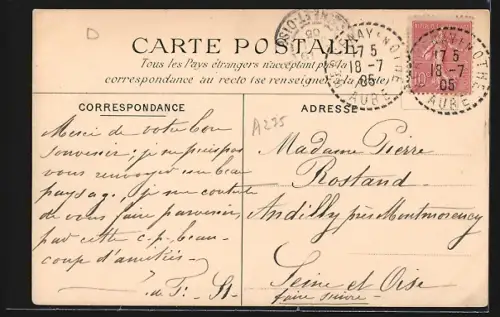 D
CARTE POSTALE
Tous les Pays étrangers n'acceptant pas la
correspondance au recto (se renseigner à la poste)
17 5
18 -7
05
AUBE
17 5
18 -7
05
AUBE
10
CORRESPONDANCE
ADRESSE
A235
Merci de votre bon
souvenir; je ne puis pas
vous renvoyer un beau
paysage, je me contente
de vous faire parvenir,
par cette c.p. beau-
coup d'amitiés
Madame Pierre
Rostand
Andilly près Montmorency
Seine et Oise
faire suivre